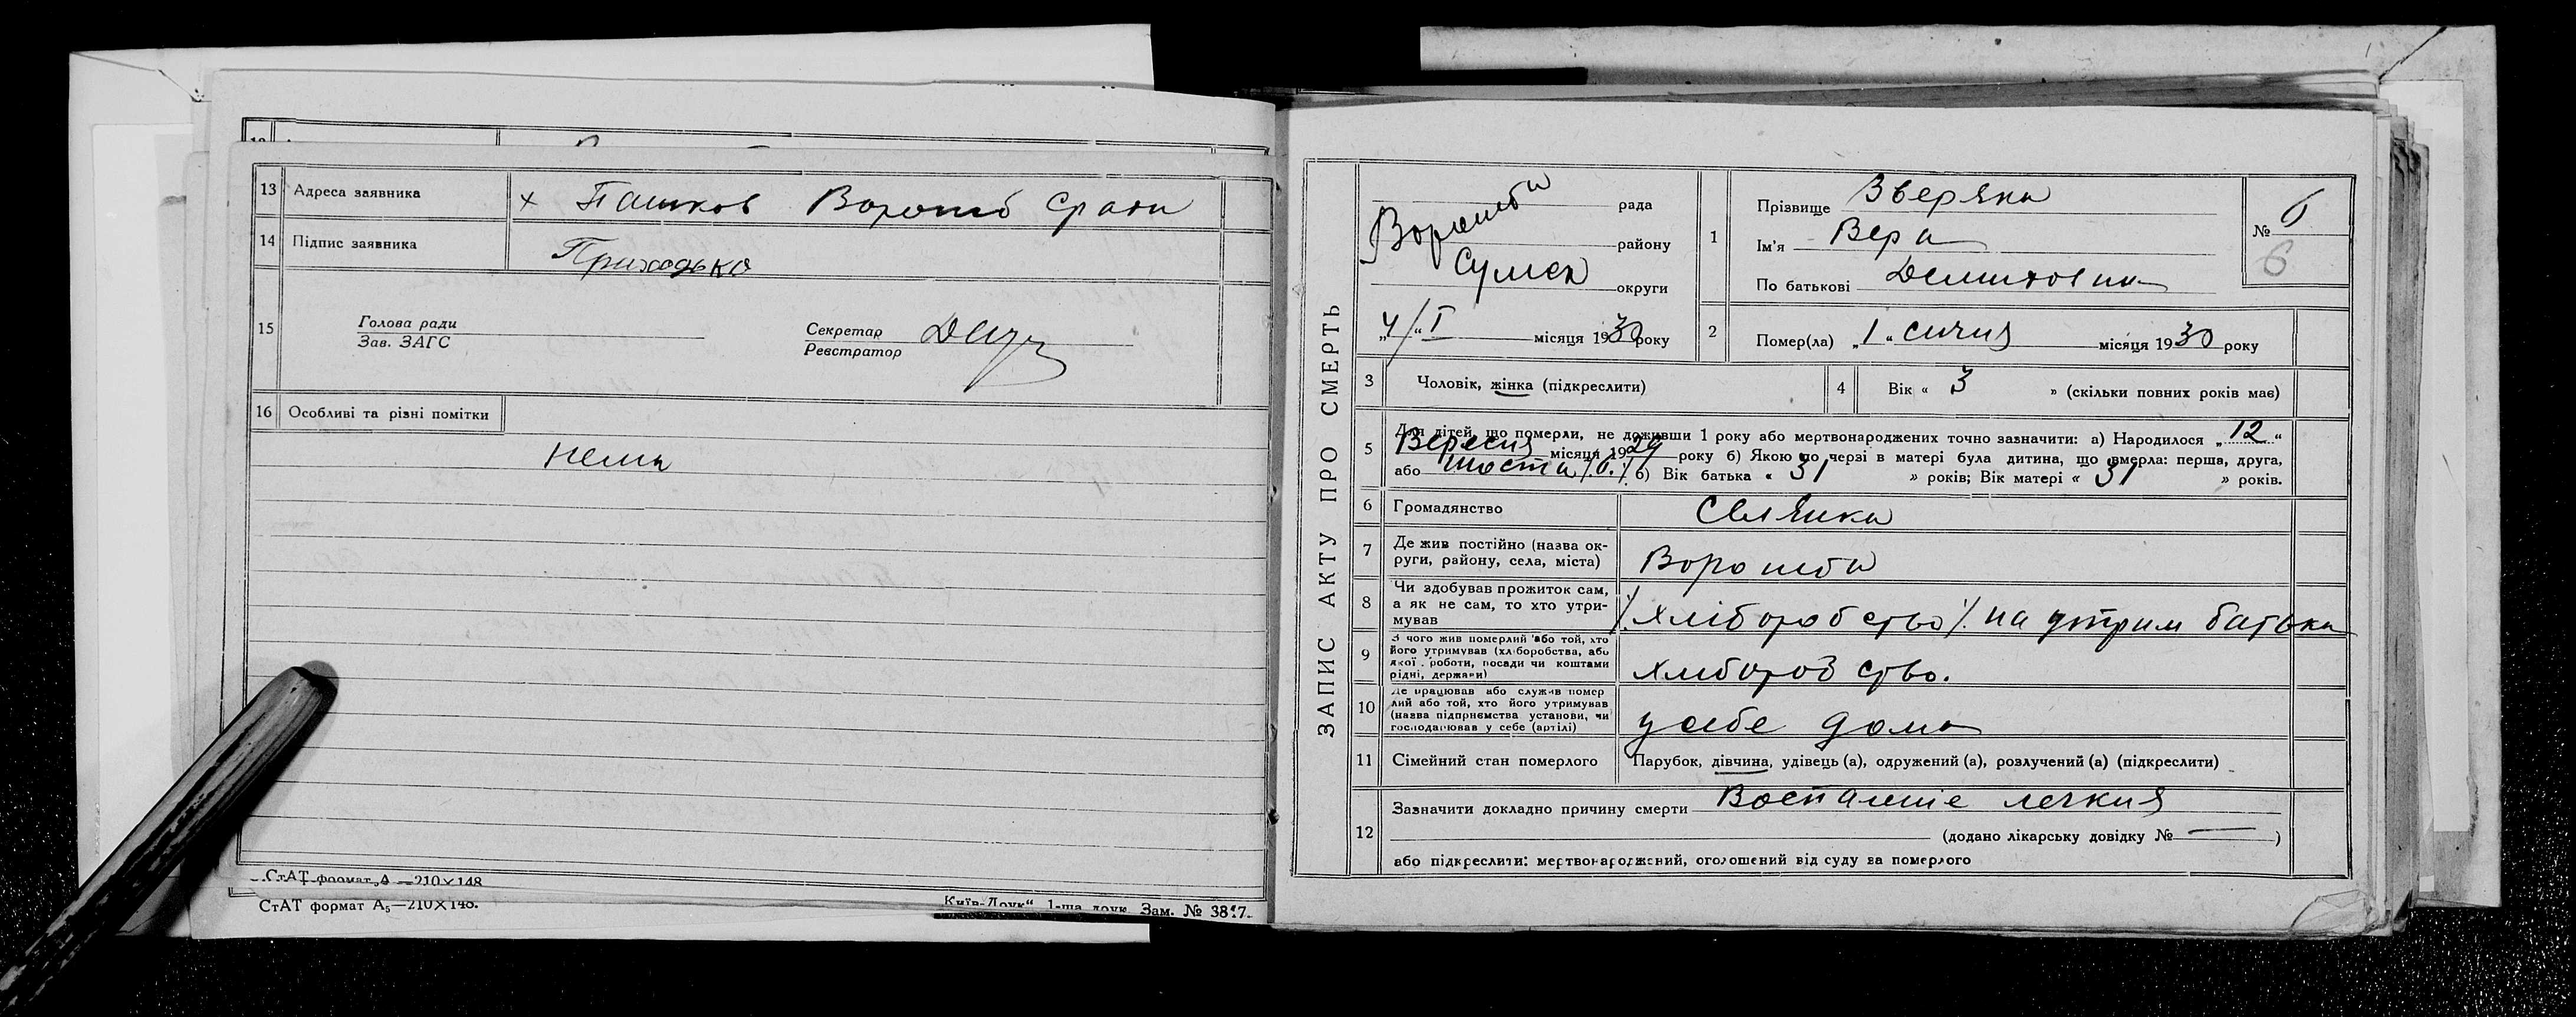 13 Адреса заявника х Пашков Ворожб Сради
14 Підпис заявника Приходько
15 Голова ради
Зав. ЗАГС
Секретар
Реєстратор
16 Особливі та різні помітки
нема
СтАТ формат А —210×148
СтАТ формат А₅—210×148.
"Київ-Друк" 1-ша друк. Зам. № 3817.
ЗАПИС АКТУ ПРО СМЕРТЬ
Ворожба рада
району
Сумск округи
„4/“ I місяця 1930 року
1 Прізвище Зверяка
Ім'я Вера
По батькові Демитовна
№ 6
6
2 Помер(ла) „1“ сичня місяця 1930 року
3 Чоловік, жінка (підкреслити)
4 Вік « 3 » (скільки повних років має)
5 Для дітей, що померли, не доживши 1 року або мертвонароджених точно зазначити: а) Народилося „12“
Вересня місяця 1929 року б) Якою по черзі в матері була дитина, що вмерла: перша, друга,
або шоста /6./ б) Вік батька « 31 » років; Вік матері « 31 » років.
6 Громадянство Селянка
7 Де жив постійно (назва округи, району, села, міста) Ворожба
8 Чи здобував прожиток сам, а як не сам, то хто утримував /.хліборобство/. на утрим батька
9 З чого жив померлий або той, хто його утримував (хліборобства, або якої роботи, посади чи коштами рідні, держави) хлиборобство.
10 Де працював або служив померлий або той, хто його утримував (назва підприємства установи, чи господарював у себе (артілі) у себе дома
11 Сімейний стан померлого Парубок, дівчина, удівець (а), одружений (а), розлучений (а) (підкреслити)
12 Зазначити докладно причину смерти Воспаленіе легкия
(додано лікарську довідку № — )
або підкреслити: мертвонароджений, оголошений від суду за померлого